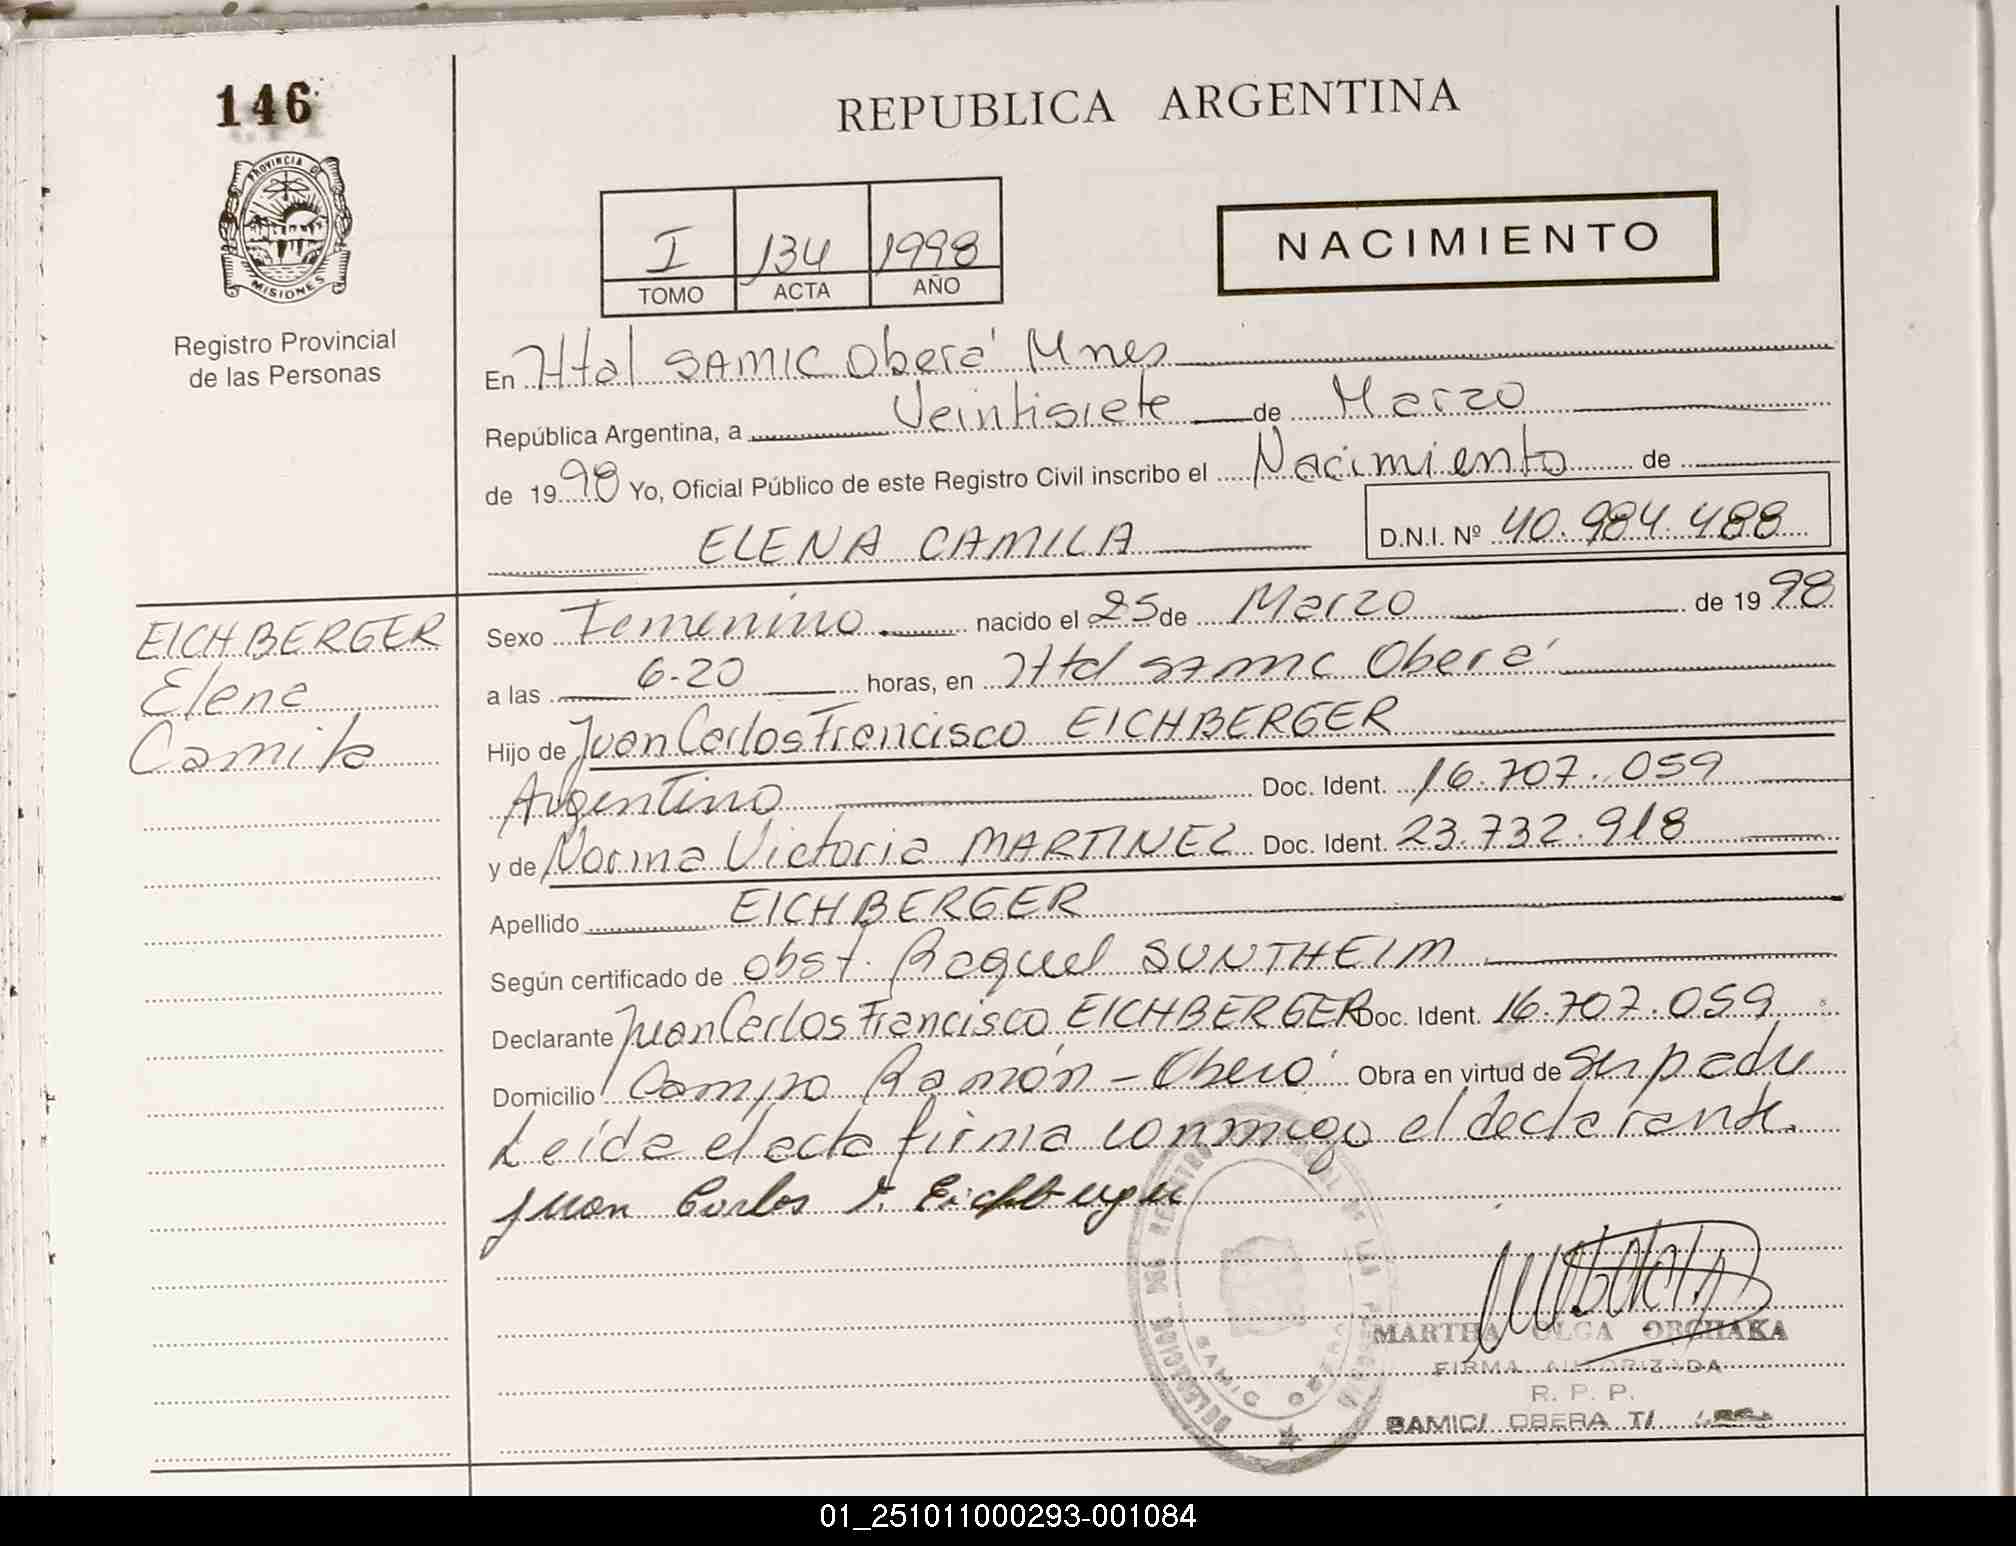 146
REPUBLICA ARGENTINA
PROVINCIA DE
MISIONES
Registro Provincial
de las Personas
I 134 1998
TOMO ACTA AÑO
NACIMIENTO
En Htal SAMIC Oberá Mnes
República Argentina, a Veintisiete de Marzo
de 1998 Yo, Oficial Público de este Registro Civil inscribo el Nacimiento de
ELENA CAMILA D.N.I. Nº 40.984.488
EICHBERGER
Elena
Camila
Sexo Femenino nacido el 25 de Marzo de 1998
a las 6-20 horas, en Htal SAMIC Oberá
Hijo de Juan Carlos Francisco EICHBERGER
Argentino Doc. Ident. 16.707.059
y de Norma Victoria MARTINEZ Doc. Ident. 23.732.918
Apellido EICHBERGER
Según certificado de obst. Raquel SUNTHEIM
Declarante Juan Carlos Francisco EICHBERGER Doc. Ident. 16.707.059
Domicilio Campo Ramón - Oberá Obra en virtud de ser padre
Leída el acta firma conmigo el declarante.
Juan Carlos F. Eichberger
MARTHA OLGA ORCHAKA
FIRMA AUTORIZADA
R. P. P.
SAMIC/ OBERA T/
01_251011000293-001084